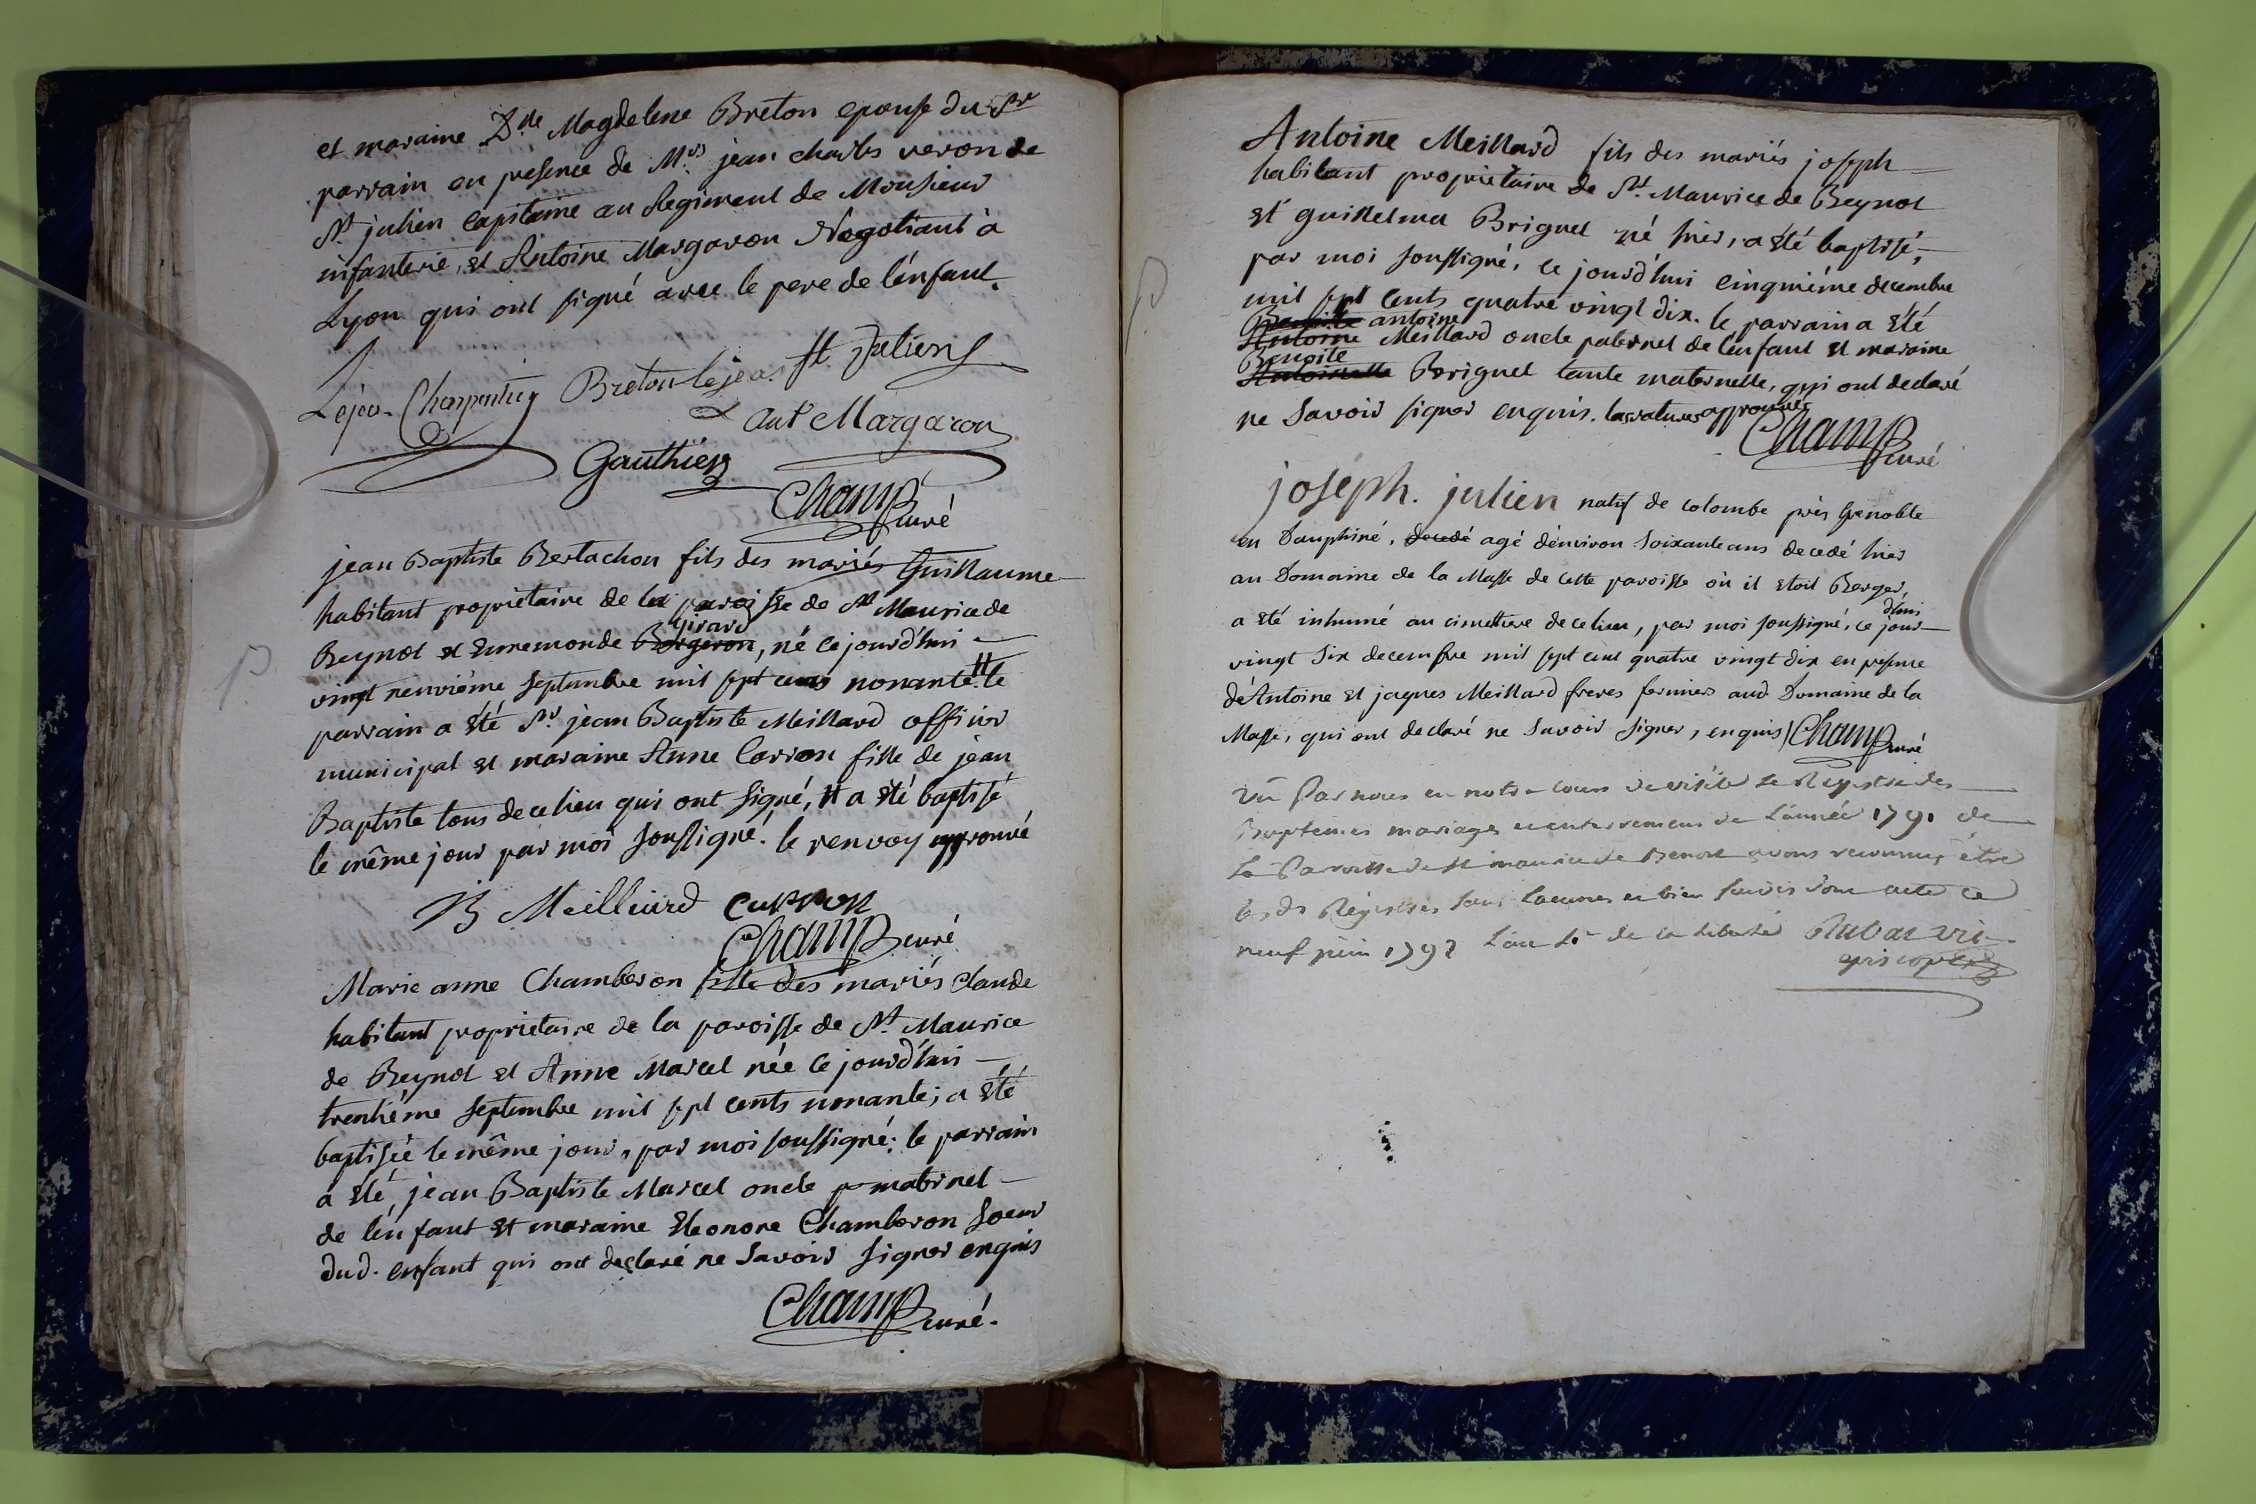 et maraine D.lle Magdelene Breton epouse du Sr
parrain en presence de Mrs jean charles veron de
St julien capitaine au Regiment de Monsieur
infanterie, et Antoine Margaron Negotiant à
Lyon qui ont signé avec le pere de l'enfant.
Lejeas Charpentier Breton lejeas St Julien
ant Margaron
Gauthier
Champ curé
jean Baptiste Bertachon fils des mariés Guillaume
habitant proprietaire de la paroisse de St Maurice de
Girard
Beynot et Ennemonde Bergeron, né ce jourd'hui
vingt neuvième Septembre mil sept cens nonante # le
parrain a été Sr jean Baptiste Meillard officier
municipal et maraine Anne Carron fille de jean
Baptiste tous de ce lieu qui ont signé, # a été baptisé
le même jour par moi soussigné. le renvoy approuvé
JB Meilliard carron
Champ curé
Marie anne Chamberon fille des mariés Claude
habitant proprietaire de la paroisse de St Maurice
de Beynot et Anne Marcel née ce jourd'hui
trentième Septembre mil sept cents nonante; a été
baptisée le même jour, par moi soussigné: le parrain
a été, jean Baptiste Marcel oncle maternel
de l'enfant et maraine Eleonore Chamberon soeur
dud. enfant qui ont declaré ne savoir signer enquis
Champ curé.
Antoine Meillard fils des mariés joseph
habitant proprietaire de St Maurice de Beynot
et guillelma Briguel né hier, a été baptisé,
par moi soussigné, ce jourd'hui cinquième decembre
mil sept cents quatre vingt dix. le parrain a été
antoine
Antoine Meillard oncle paternel de l'enfant et maraine
Benoite
Antoinette Briguel tante maternelle, qui ont declaré
ne savoir signer enquis. les ratures approuvées
Champ curé
joseph. julien natif de colombe près Grenoble
en Dauphiné, decedé agé d'environ soixante ans decedé hier
au Domaine de la Masse de cette paroisse où il etoit Berger,
d'hui
a été inhumé au cimettiere de ce lieu, par moi soussigné, ce jour
vingt six decembre mil sept cent quatre vingt dix en presence
d'Antoine et jaques Meillard freres fermiers aud Domaine de la
Masse, qui ont declaré ne savoir signer, enquis Champ curé
vû Par nous en notre cours de visite le Registre des
Baptemes mariages et enterremens de l'année 1791 de
la Paroisse de St maurice de Benost avons reconnu être
les ds Registres sans lacunes et bien suivis dont acte ce
neuf juin 1792 l'an 4e de la liberté Rubat vic
episcopal